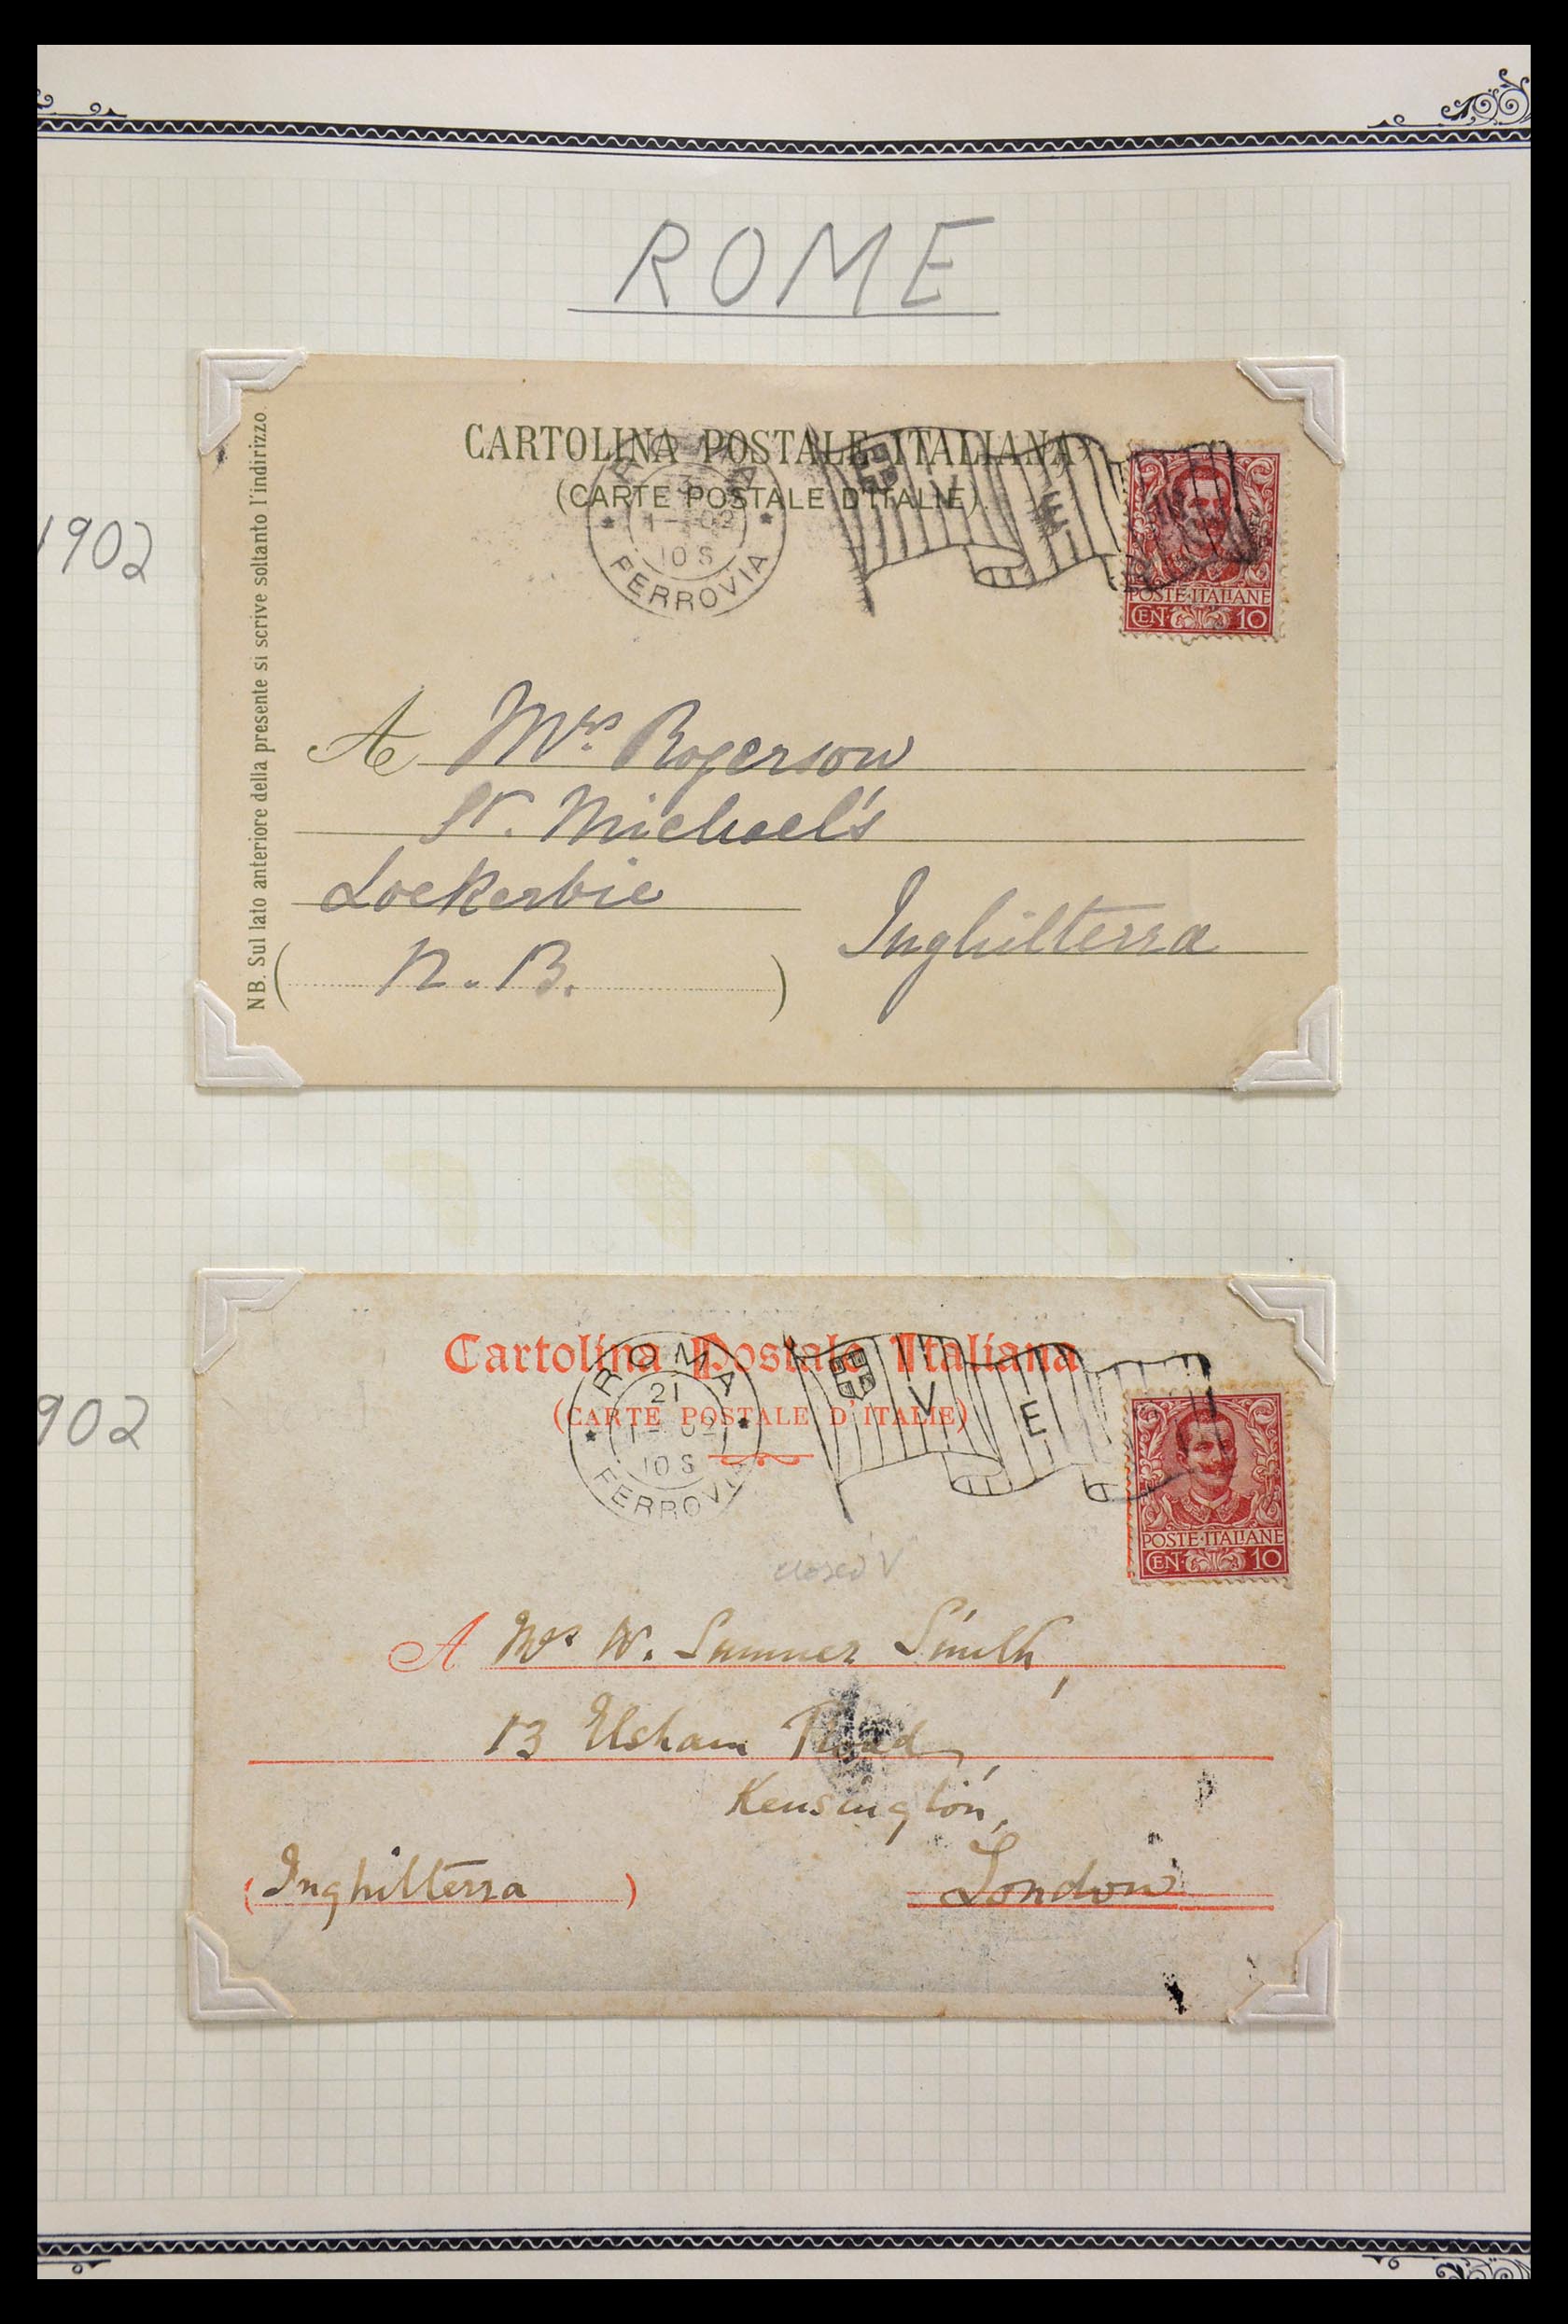 ROME
1902
CARTOLINA POSTALE ITALIANA
(CARTE POSTALE D'ITALIE)
ROMA
1-02
10 S
FERROVIA
E
POSTE·ITALIANE
CEN· 10
NB. Sul lato anteriore della presente si scrive soltanto l'indirizzo.
A Mrs. Rogerson
St. Michael's
Lockerbie
N.B.
Inghilterra
902
Cartolina Postale Italiana
(CARTE POSTALE D'ITALIE)
ROMA
21
1-02
10 S
FERROVIA
V E
POSTE·ITALIANE
CEN· 10
closed V
A Mrs W. Sumner Smith,
13 Elsham Road,
Kensington,
London
(Inghilterra)